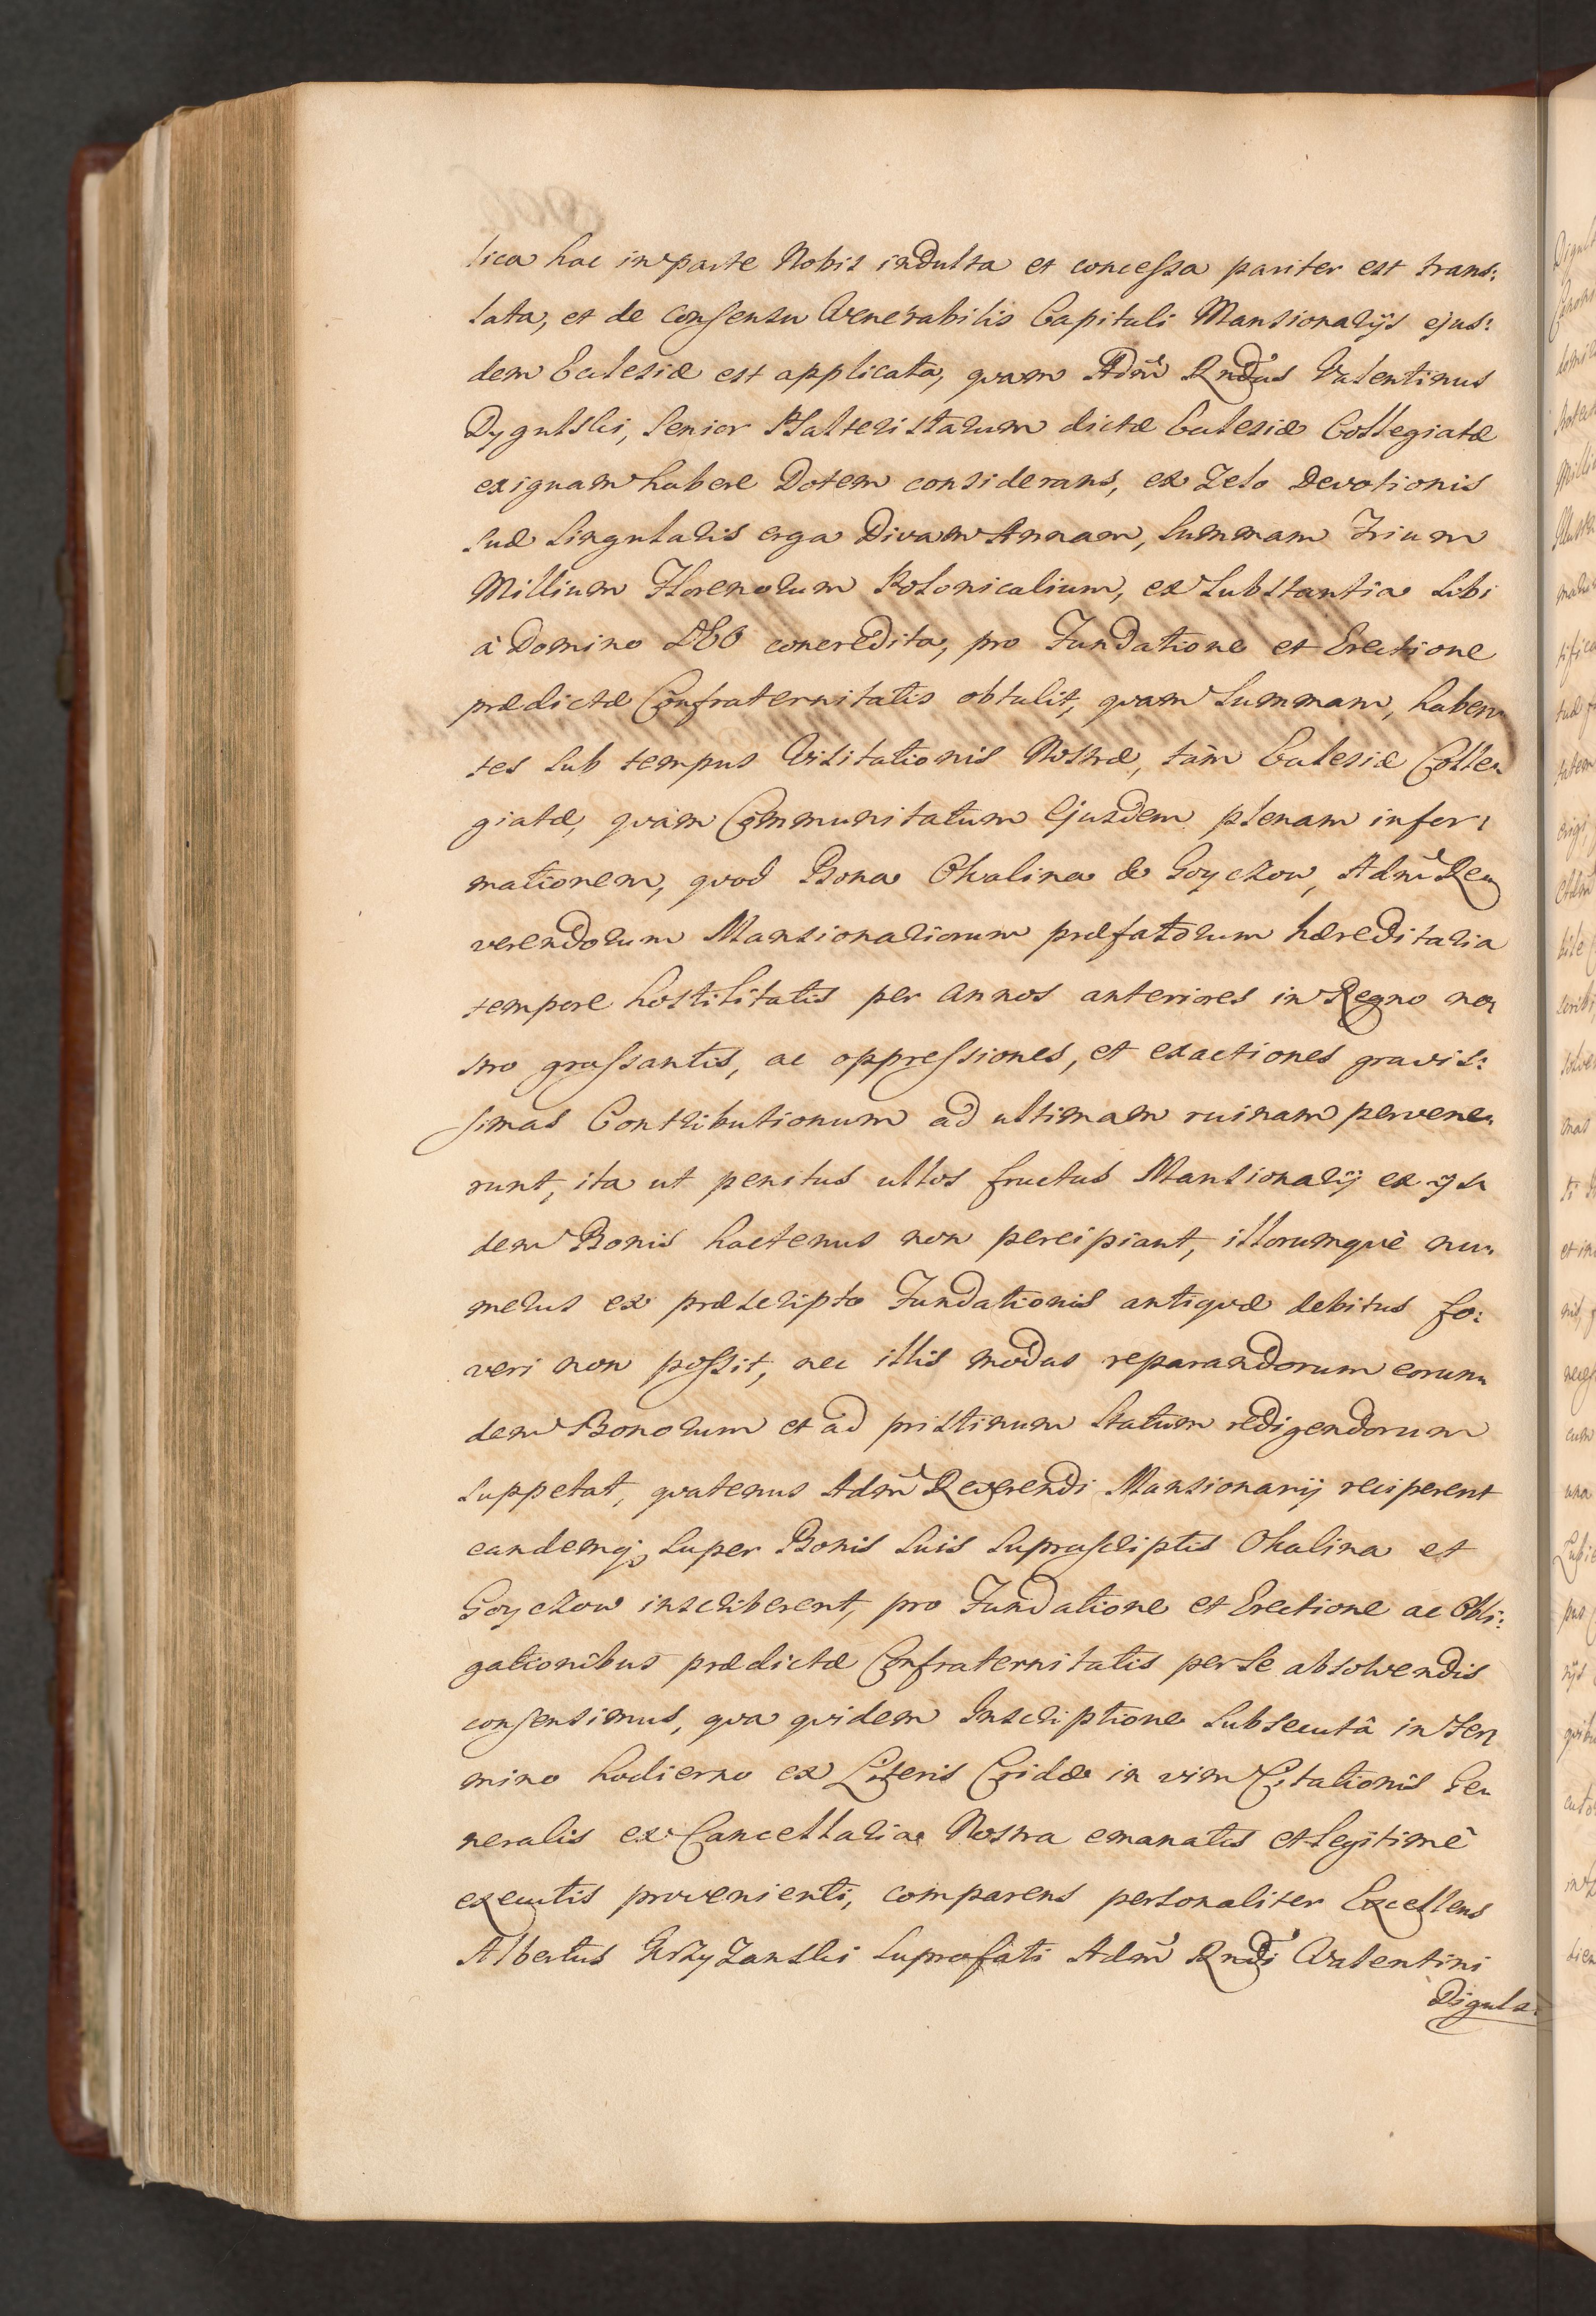 lica hac in parte Nobis indulta et concessa pariter est trans:
lata, et de consensu Venerabilis Capituli Mansionarijs ejus:
dem Ecclesiæ est applicata, quam Adm̃ Rnd̃us Valentinus
Dygulski, Senior Psalteristarum dictæ Ecclesiæ Collegiatæ
exiguam habere Dotem considerans, ex Zelo Devotionis
suæ singularis erga Divam Annam, summam Trium
Millium Florenorum Polonicalium, ex substantia sibi
à Domino DEO concredita, pro Fundatione et Erectione
prædictæ Confraternitatis obtulit, quam summam, haben
tes sub tempus Visitationis Nostræ, tàm Ecclesiæ Colle
giatæ, quàm Communitatum Ejusdem plenam infor:
mationem, quod Bona Okalina & Goyczow, Adm̃ Re
verendorum Mansionariorum præfatorum hæreditaria
tempore hostilitatis per annos anteriores in Regno no
stro grassantis, ac oppressiones, et exactiones gravis:
simas Contributionum ad ultimam ruinam pervene
runt, ita ut penitus ullos fructus Mansionarij ex ijs
dem Bonis hactenus non percipiant, illorumquè nu
merus ex præscripto Fundationis antiquæ debitus fo:
veri non possit, nec illis modus reparandorum eorun
dem Bonorum et ad pristinum statum redigendorum
suppetat, quatenus Adm̃ Reverendi Mansionarij reciperent
eandemq; super Bonis suis suprascriptis Okalina et
Goyczow inscriberent, pro Fundatione et Erectione ac Obli:
gationibus prædictæ Confraternitatis per se absolvendis
consensimus, qua quidem Inscriptione subsecutâ in Ter
mino hodierno ex Literis Cridæ in vim Citationis Ge
neralis ex Cancellaria Nostra emanatis et legitimè
executis provenienti, comparens personaliter Excellens
Albertus Krzyzanski suprafati Adm̃ Rnd̃i Valentini
Diguls: